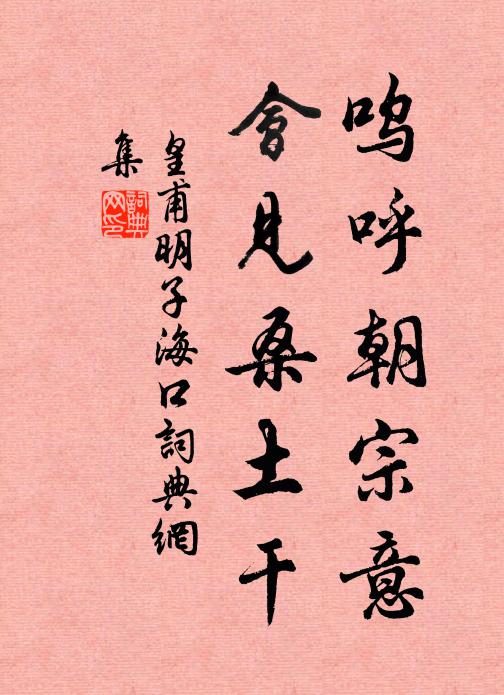 呜呼朝宗意
會見桑土干
皇甫明子海口詞典網
集
詞典
网印